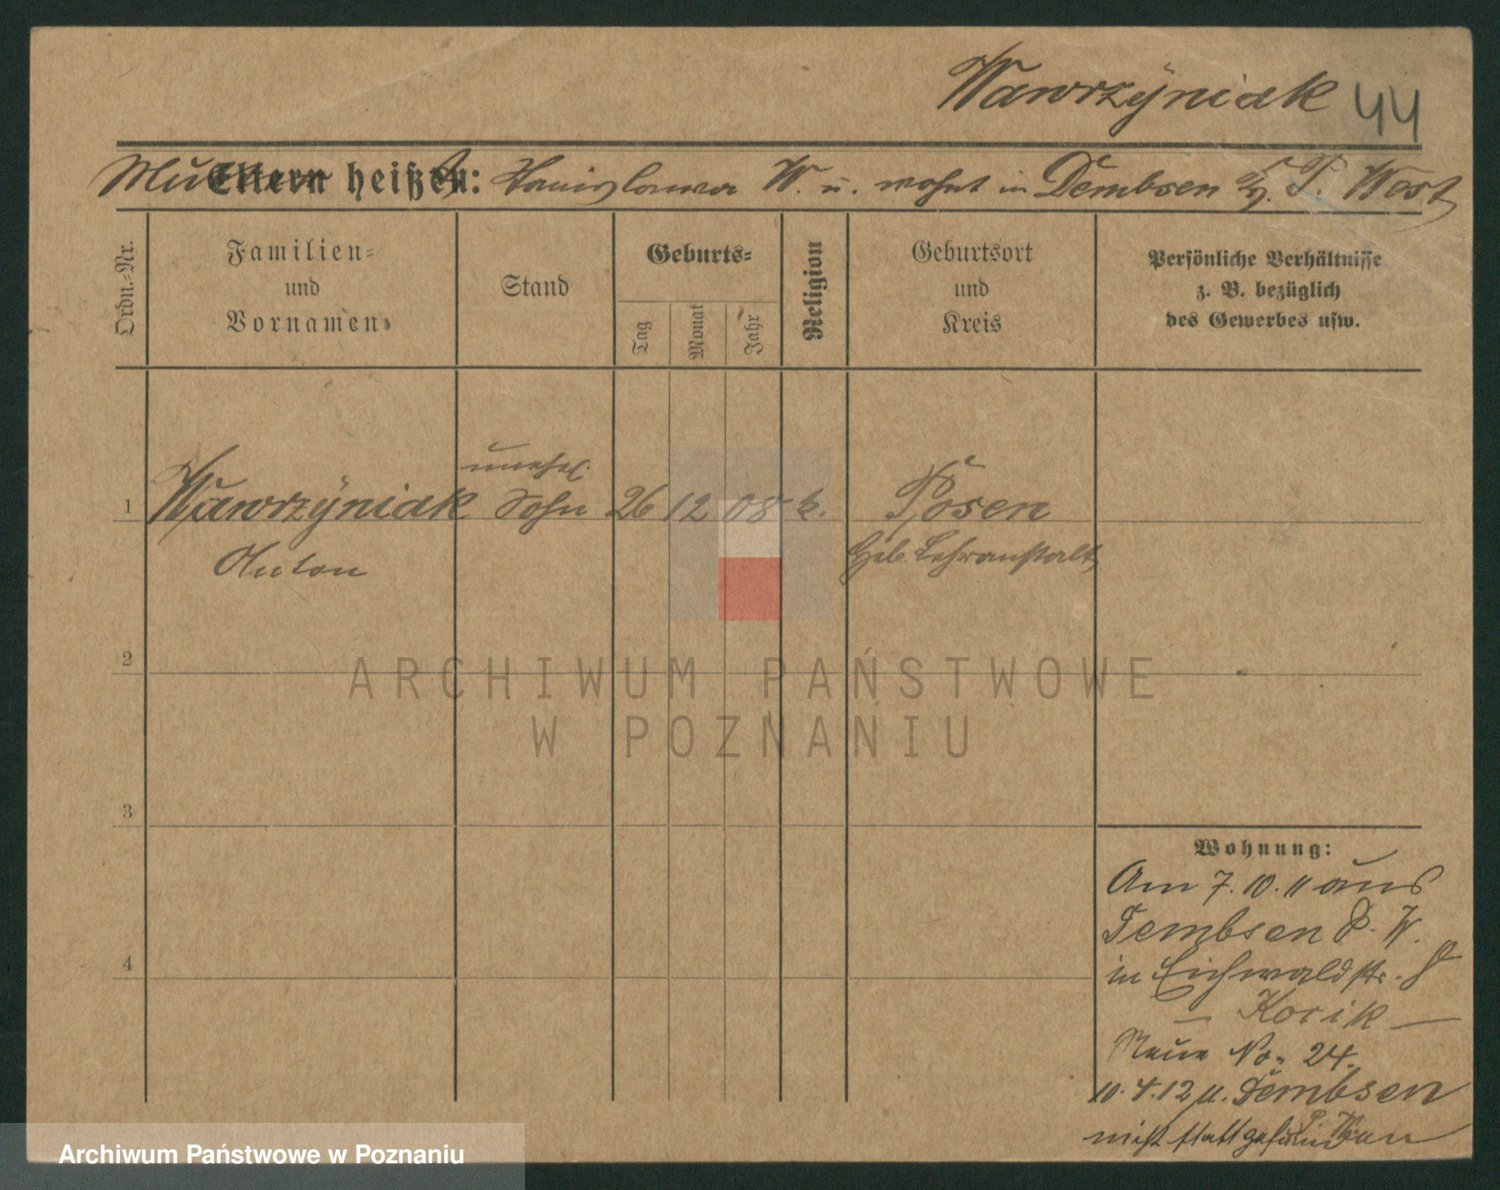 Wawrzÿniak 44
Mutter heißt: Stanislawa W. u. wohnt in Dembsen P. West
Ordn.-Nr.
Familien-
und
Vornamen
Stand
Geburts-
Tag
Monat
Jahr
Religion
Geburtsort
und
Kreis
Persönliche Verhältnisse
z. B. bezüglich
des Gewerbes usw.
unehel.
1 Wawrzÿniak Sohn 26 12 08 k. Posen
Anton Heb. Lehranstalt
2
ARCHIWUM PAŃSTWOWE
W POZNANIU
3
Wohnung:
Am 7. 10. 11 aus
Dembsen P. W.
in Eichwaldstr. 8
— Kocik —
Neue No. 24.
4
10. 4. 12 n. Dembsen
P. W.
nicht stattgefunden
Archiwum Państwowe w Poznaniu